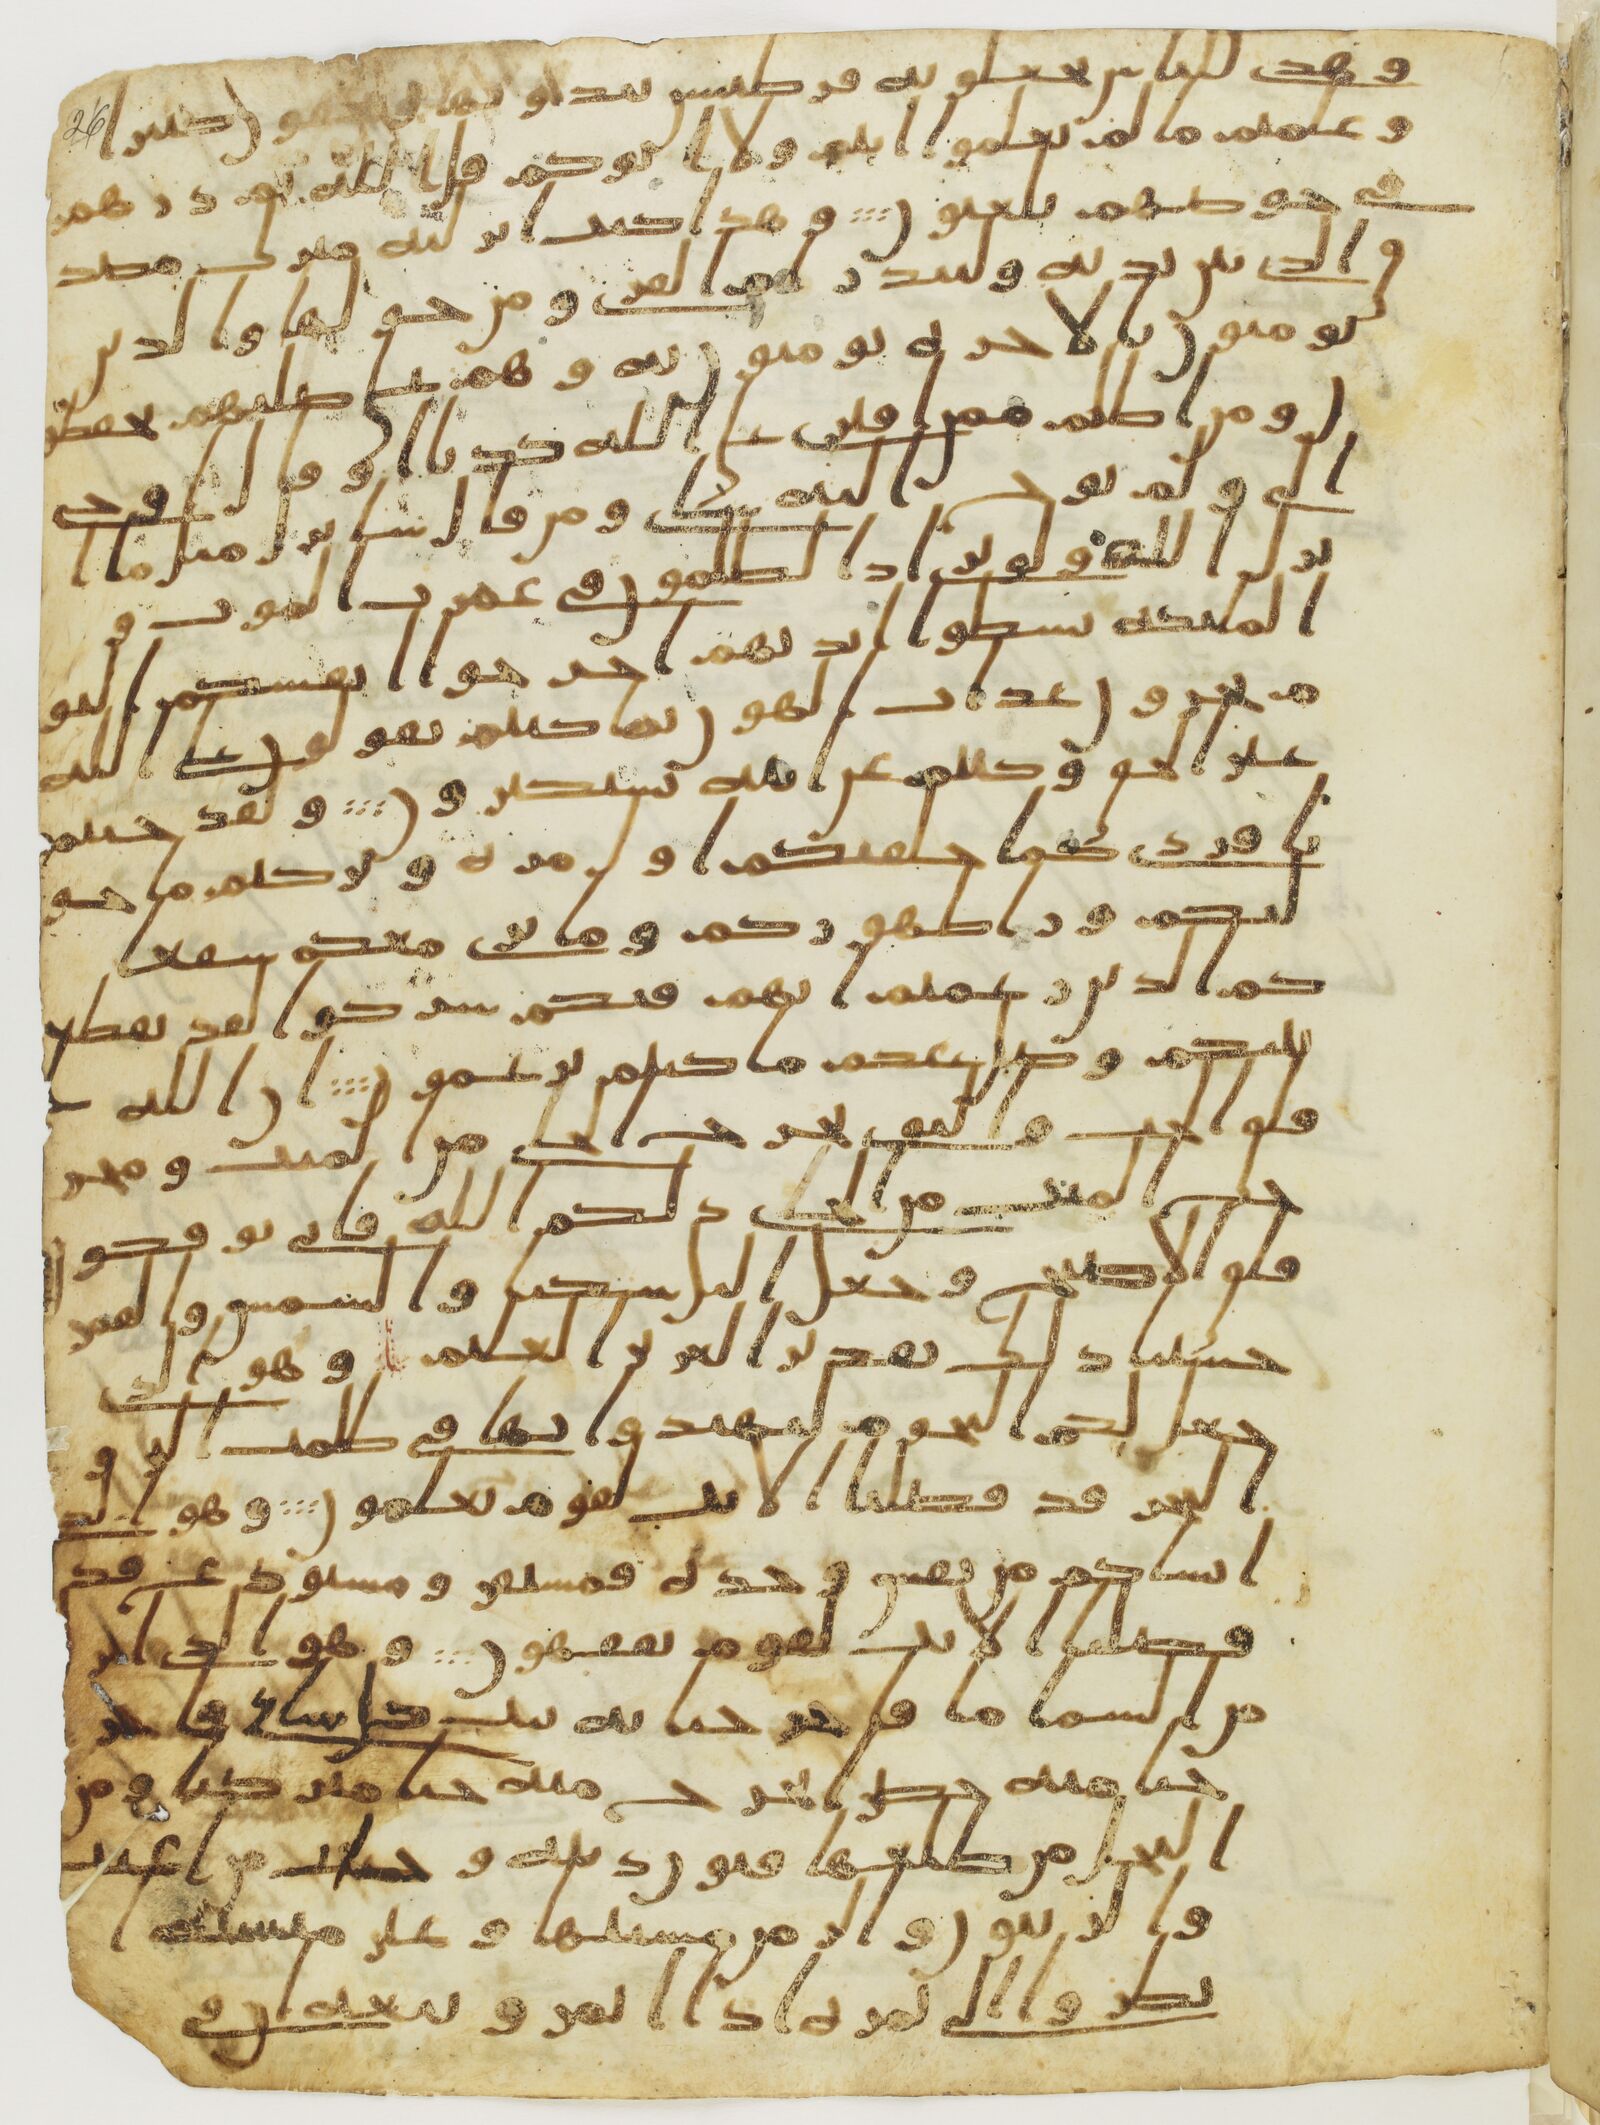 وهدى للناس تجعلونه قرطيس تبدونها وتخفون كثيرا
وعلمتم ما لم تعلموا انتم ولا اباوكم قل الله ثم ذرهم
في خوضهم يلعبون وهذا كتب انزلنه مبرك مصدق
الذي بين يديه ولتنذر ام القرى ومن حولها والذين
يومنون بالاخرة يومنون به وهم على صلاتهم يحفظو
ن ومن اظلم ممن افترى على الله كذبا او قال اوحي
الي ولم يوح اليه شي ومن قال سانزل مثل ما ا
نزل الله ولو ترى اذ الظلمون في غمرت الموت و
الملئكة بسطوا ايديهم اخرجوا انفسكم اليو
م تجزون عذاب الهون بما كنتم تقولون على الله
غير الحق وكنتم عن ايته تستكبرون ولقد جيتمو
نا فردى كما خلقنكم اول مرة وتركتم ما خو
لنكم ورا ظهوركم وما نرى معكم شفعا
كم الذين زعمتم انهم فيكم شركوا لقد تقطع
بينكم وضل عنكم ما كنتم تزعمون ان الله
فلق الحب والنوى يخرج الحي من الميت ومخر
ج الميت من الحي ذلكم الله فانى توفكون
فلق الاصبح وجعل اليل سكنا والشمس والقمر
حسبنا ذلك تقدير العزيز العليم وهو الذي
جعل لكم النجوم لتهتدوا بها في ظلمت البر و
البحر قد فصلنا الايت لقوم يعلمون وهو الذي
انشاكم من نفس وحدة فمستقر ومستودع قد
فصلنا الايت لقوم يفقهون وهو الذي انزل
من السما ما فاخرجنا به نبت كل شاي فاخر
جنا منه خضرا نخرج منه حبا متركبا ومن
النخل من طلعها قنون دنية وجنت من اعنب
والزيتون والرمن مشتبها وغير متشبه ا
نظروا الى ثمره اذا اثمر وينعه ان في